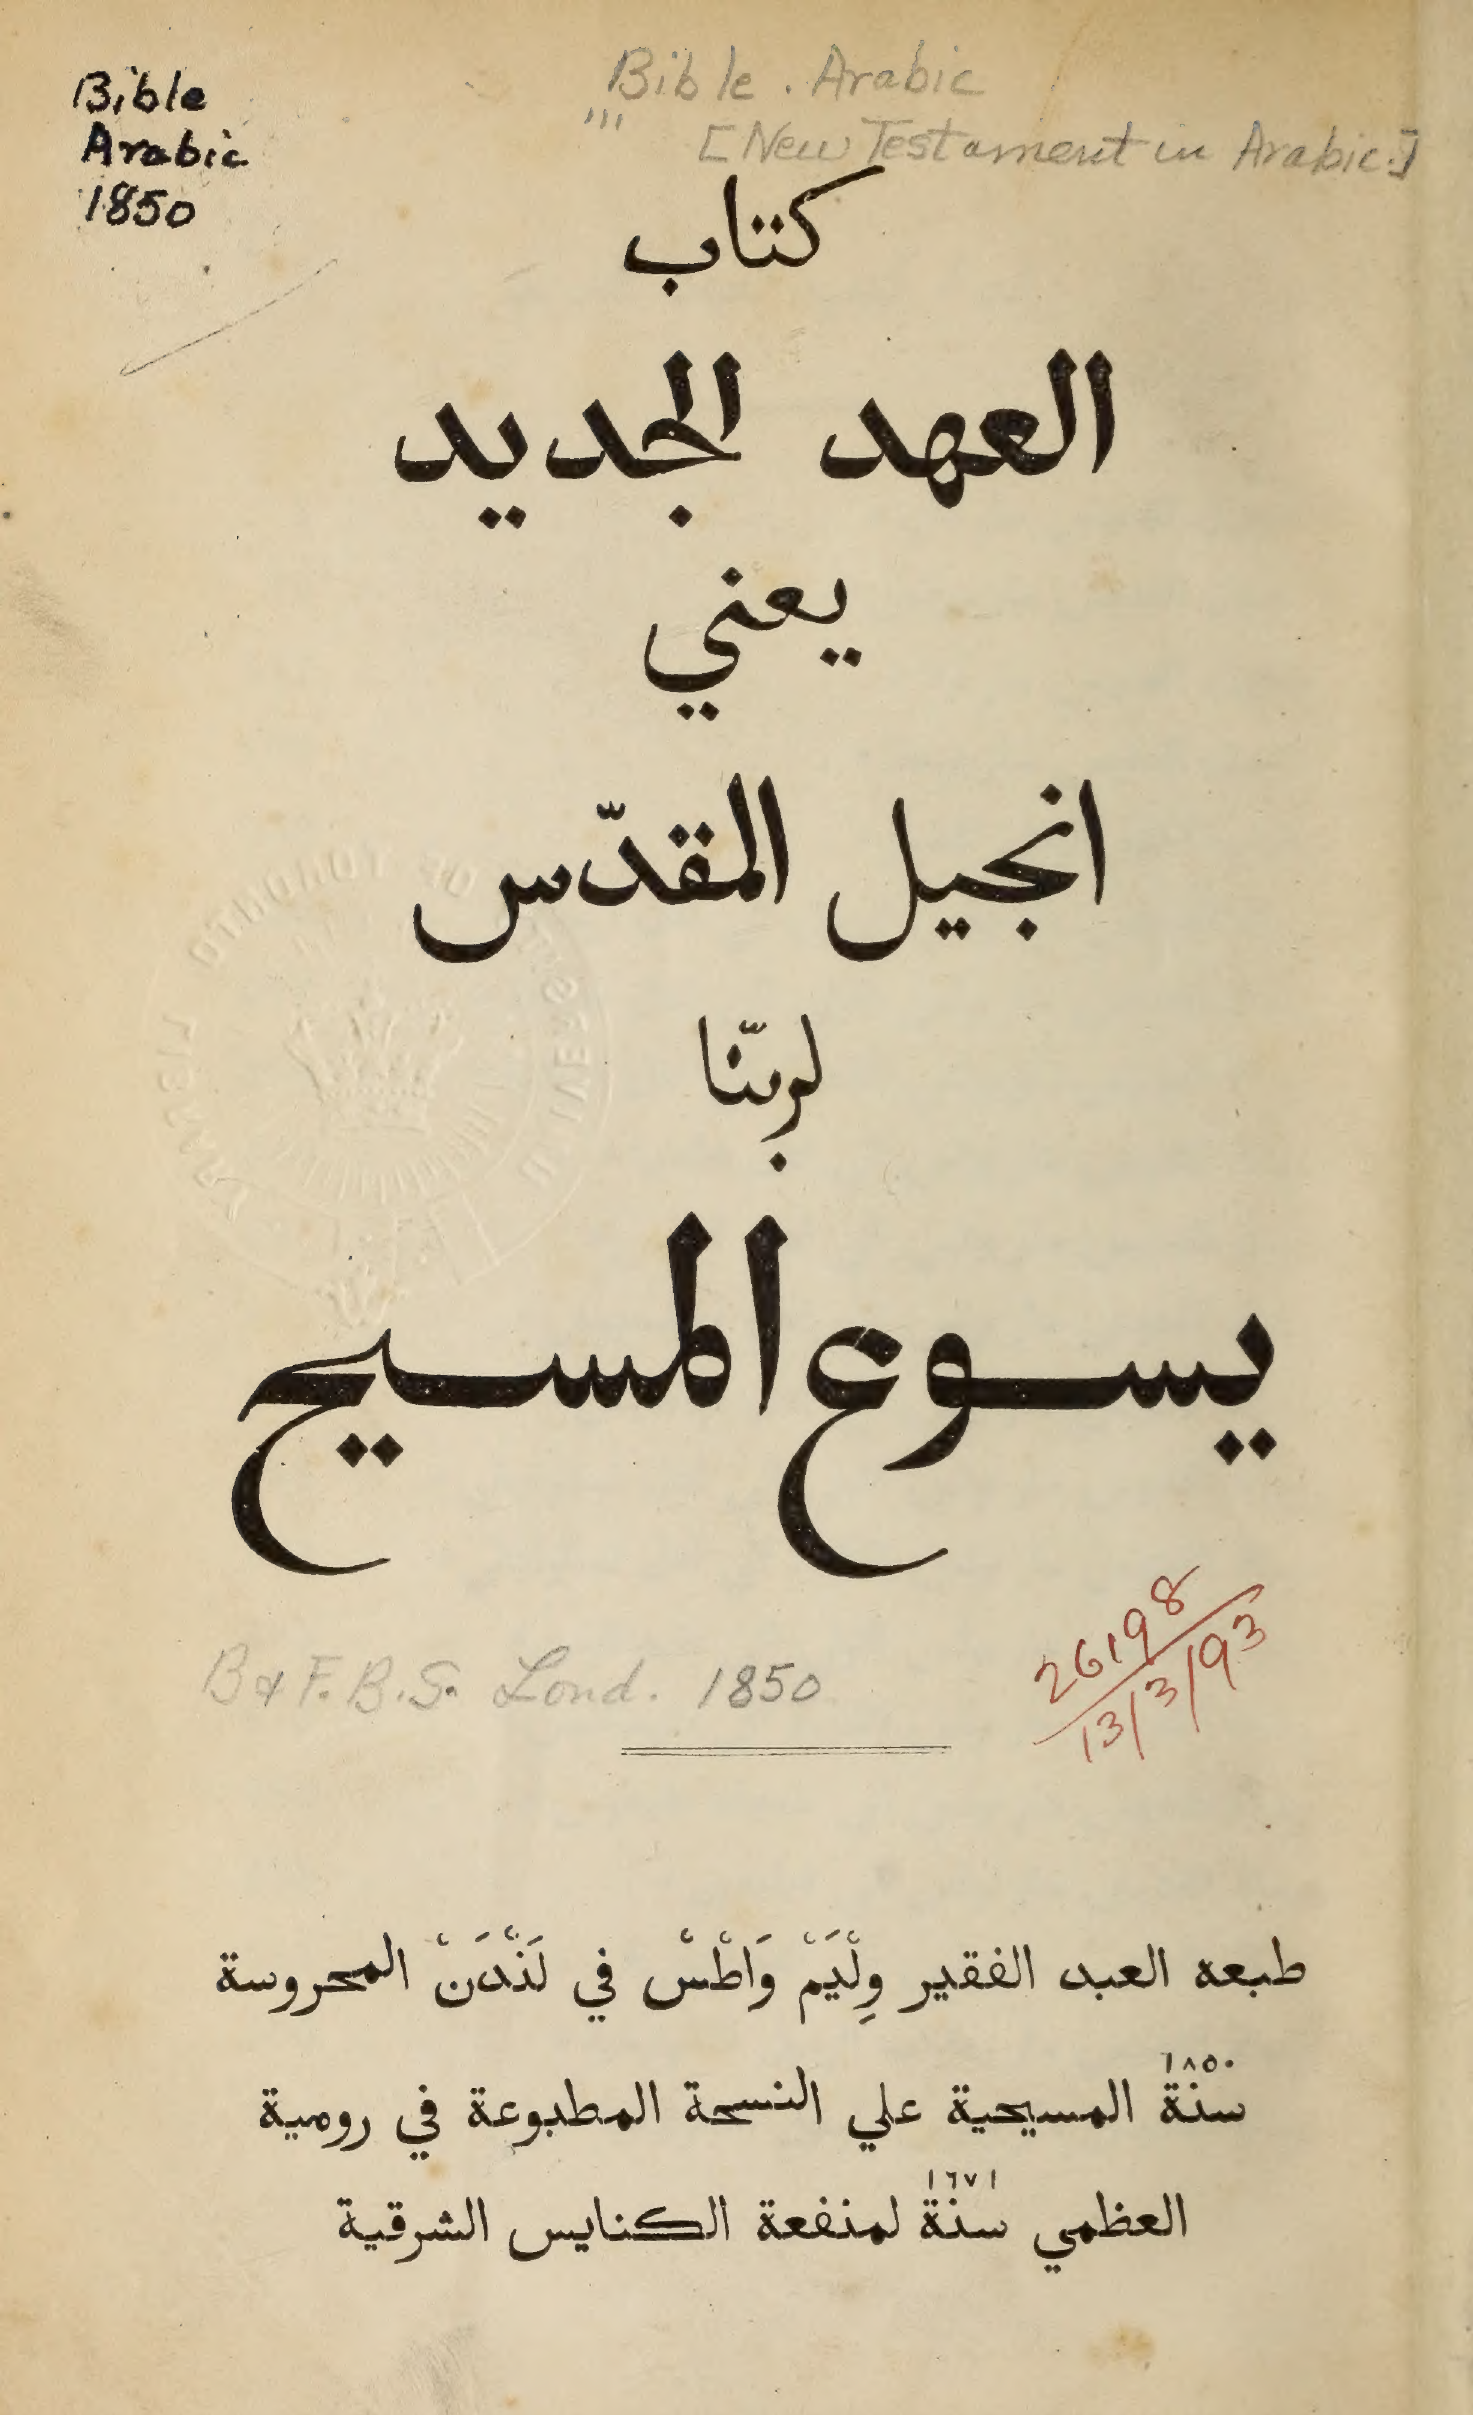 Bible
Arabic
1850
Bible . Arabic
''' [New Testament in Arabic.]
كتاب
العهد الجديد
يعني
انجيل المقدّس
لربّنا
يسوع المسيح
B & F. B. S. Lond. 1850
26198
13/3/93
طبعه العبد الفقير وِلْيَمْ وَاطْسْ في لَنْدَنْ المحروسة
١٨٥٠
سنة المسيحية علي النسخة المطبوعة في رومية
١٦٧١
العظمي سنة لمنفعة الكنايس الشرقية